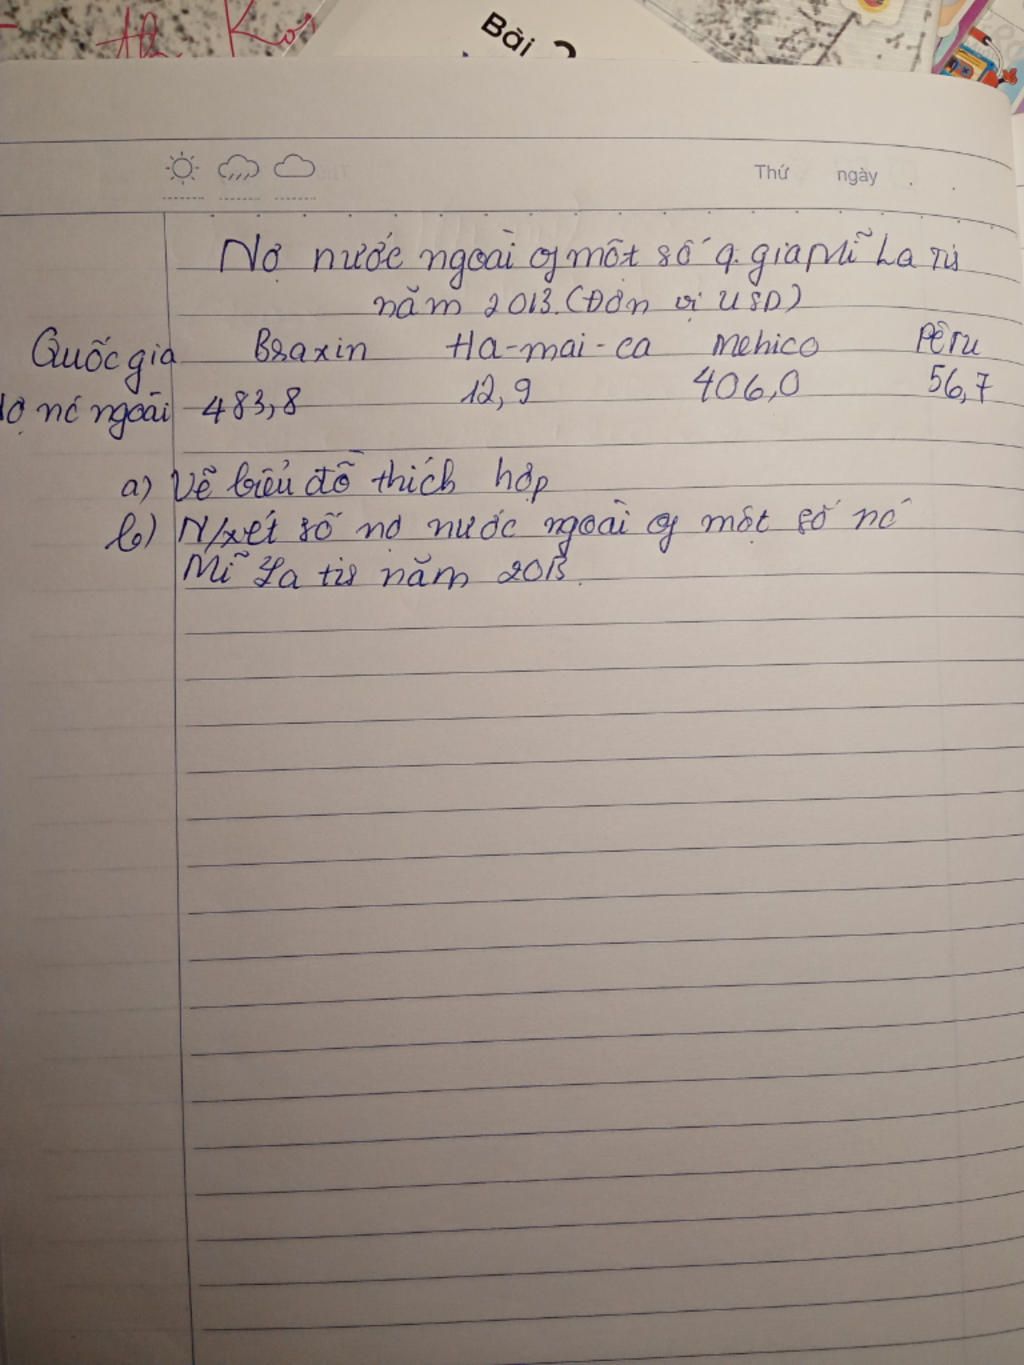 Bài 2
Thứ ngày
Nợ nước ngoài of một số q. gia Mĩ La Tis
năm 2013. (Đơn vị USD)
Quốc gia Braxin Ha-mai-ca Mehico Pêru
Nợ nc ngoài 483,8 12,9 406,0 56,7
a) Vẽ biểu đồ thích hợp
b) N/xét số nợ nước ngoài of một số nc
Mĩ La tis năm 2013.